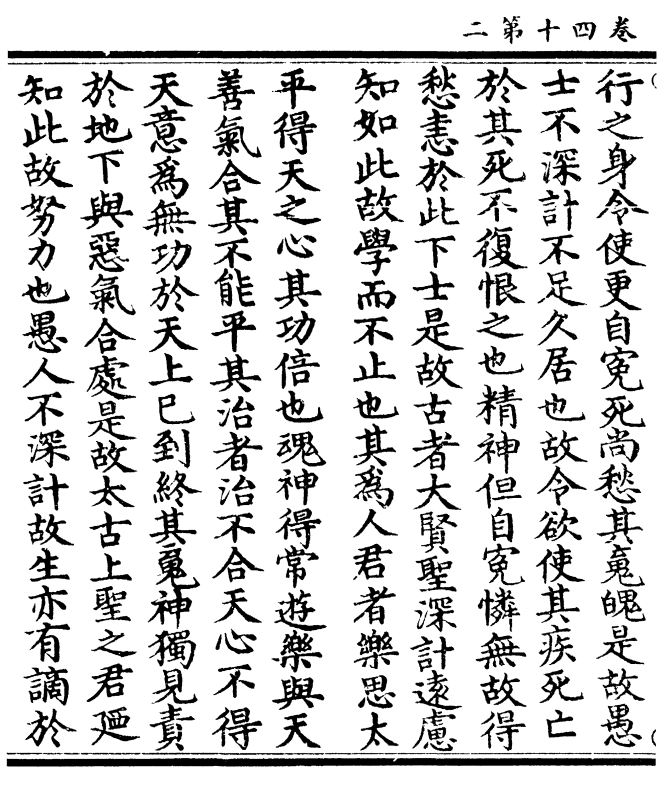 卷四十第二
行之身令使更自冤死尚愁其䰟魄是故愚
士不深計不足久居也故令欲使其疾死亡
於其死不復恨之也精神但自冤憐無故得
愁恚於此下士是故古者大賢聖深計遠慮
知如此故學而不止也其爲人君者樂思太
平得天之心其功倍也魂神得常遊樂與天
善氣合其不能平其治者治不合天心不得
天意爲無功於天上已到終其䰟神獨見責
於地下與惡氣合處是故太古上聖之君廼
知此故努力也愚人不深計故生亦有謫於